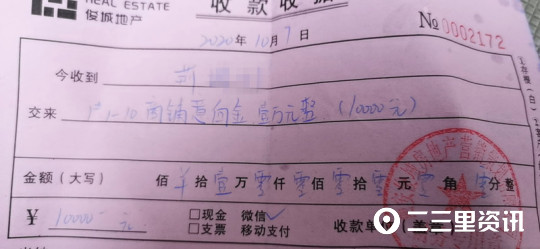 REAL ESTATE
俊城地产
收款收据
№0002172
2020年10月7日
今收到
交来 1-10商铺意向金壹万元整(10000元)
金额(大写) 佰 拾壹万零仟零佰零拾零元零角零分整
¥ 10000 元
□现金 微信✓
□支票 移动支付
收款单
①存根(白)
二三里资讯